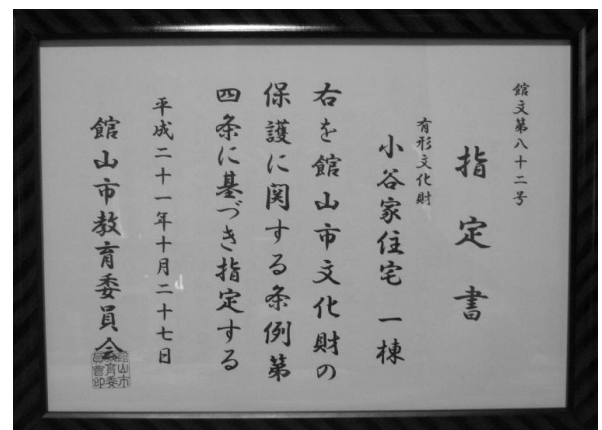 館文第八十二号
指定書
有形文化財
小谷家住宅 一棟
右を館山市文化財の
保護に関する条例第
四条に基づき指定する
平成二十一年十月二十七日
館山市教育委員会
館山市
教育委
員会印